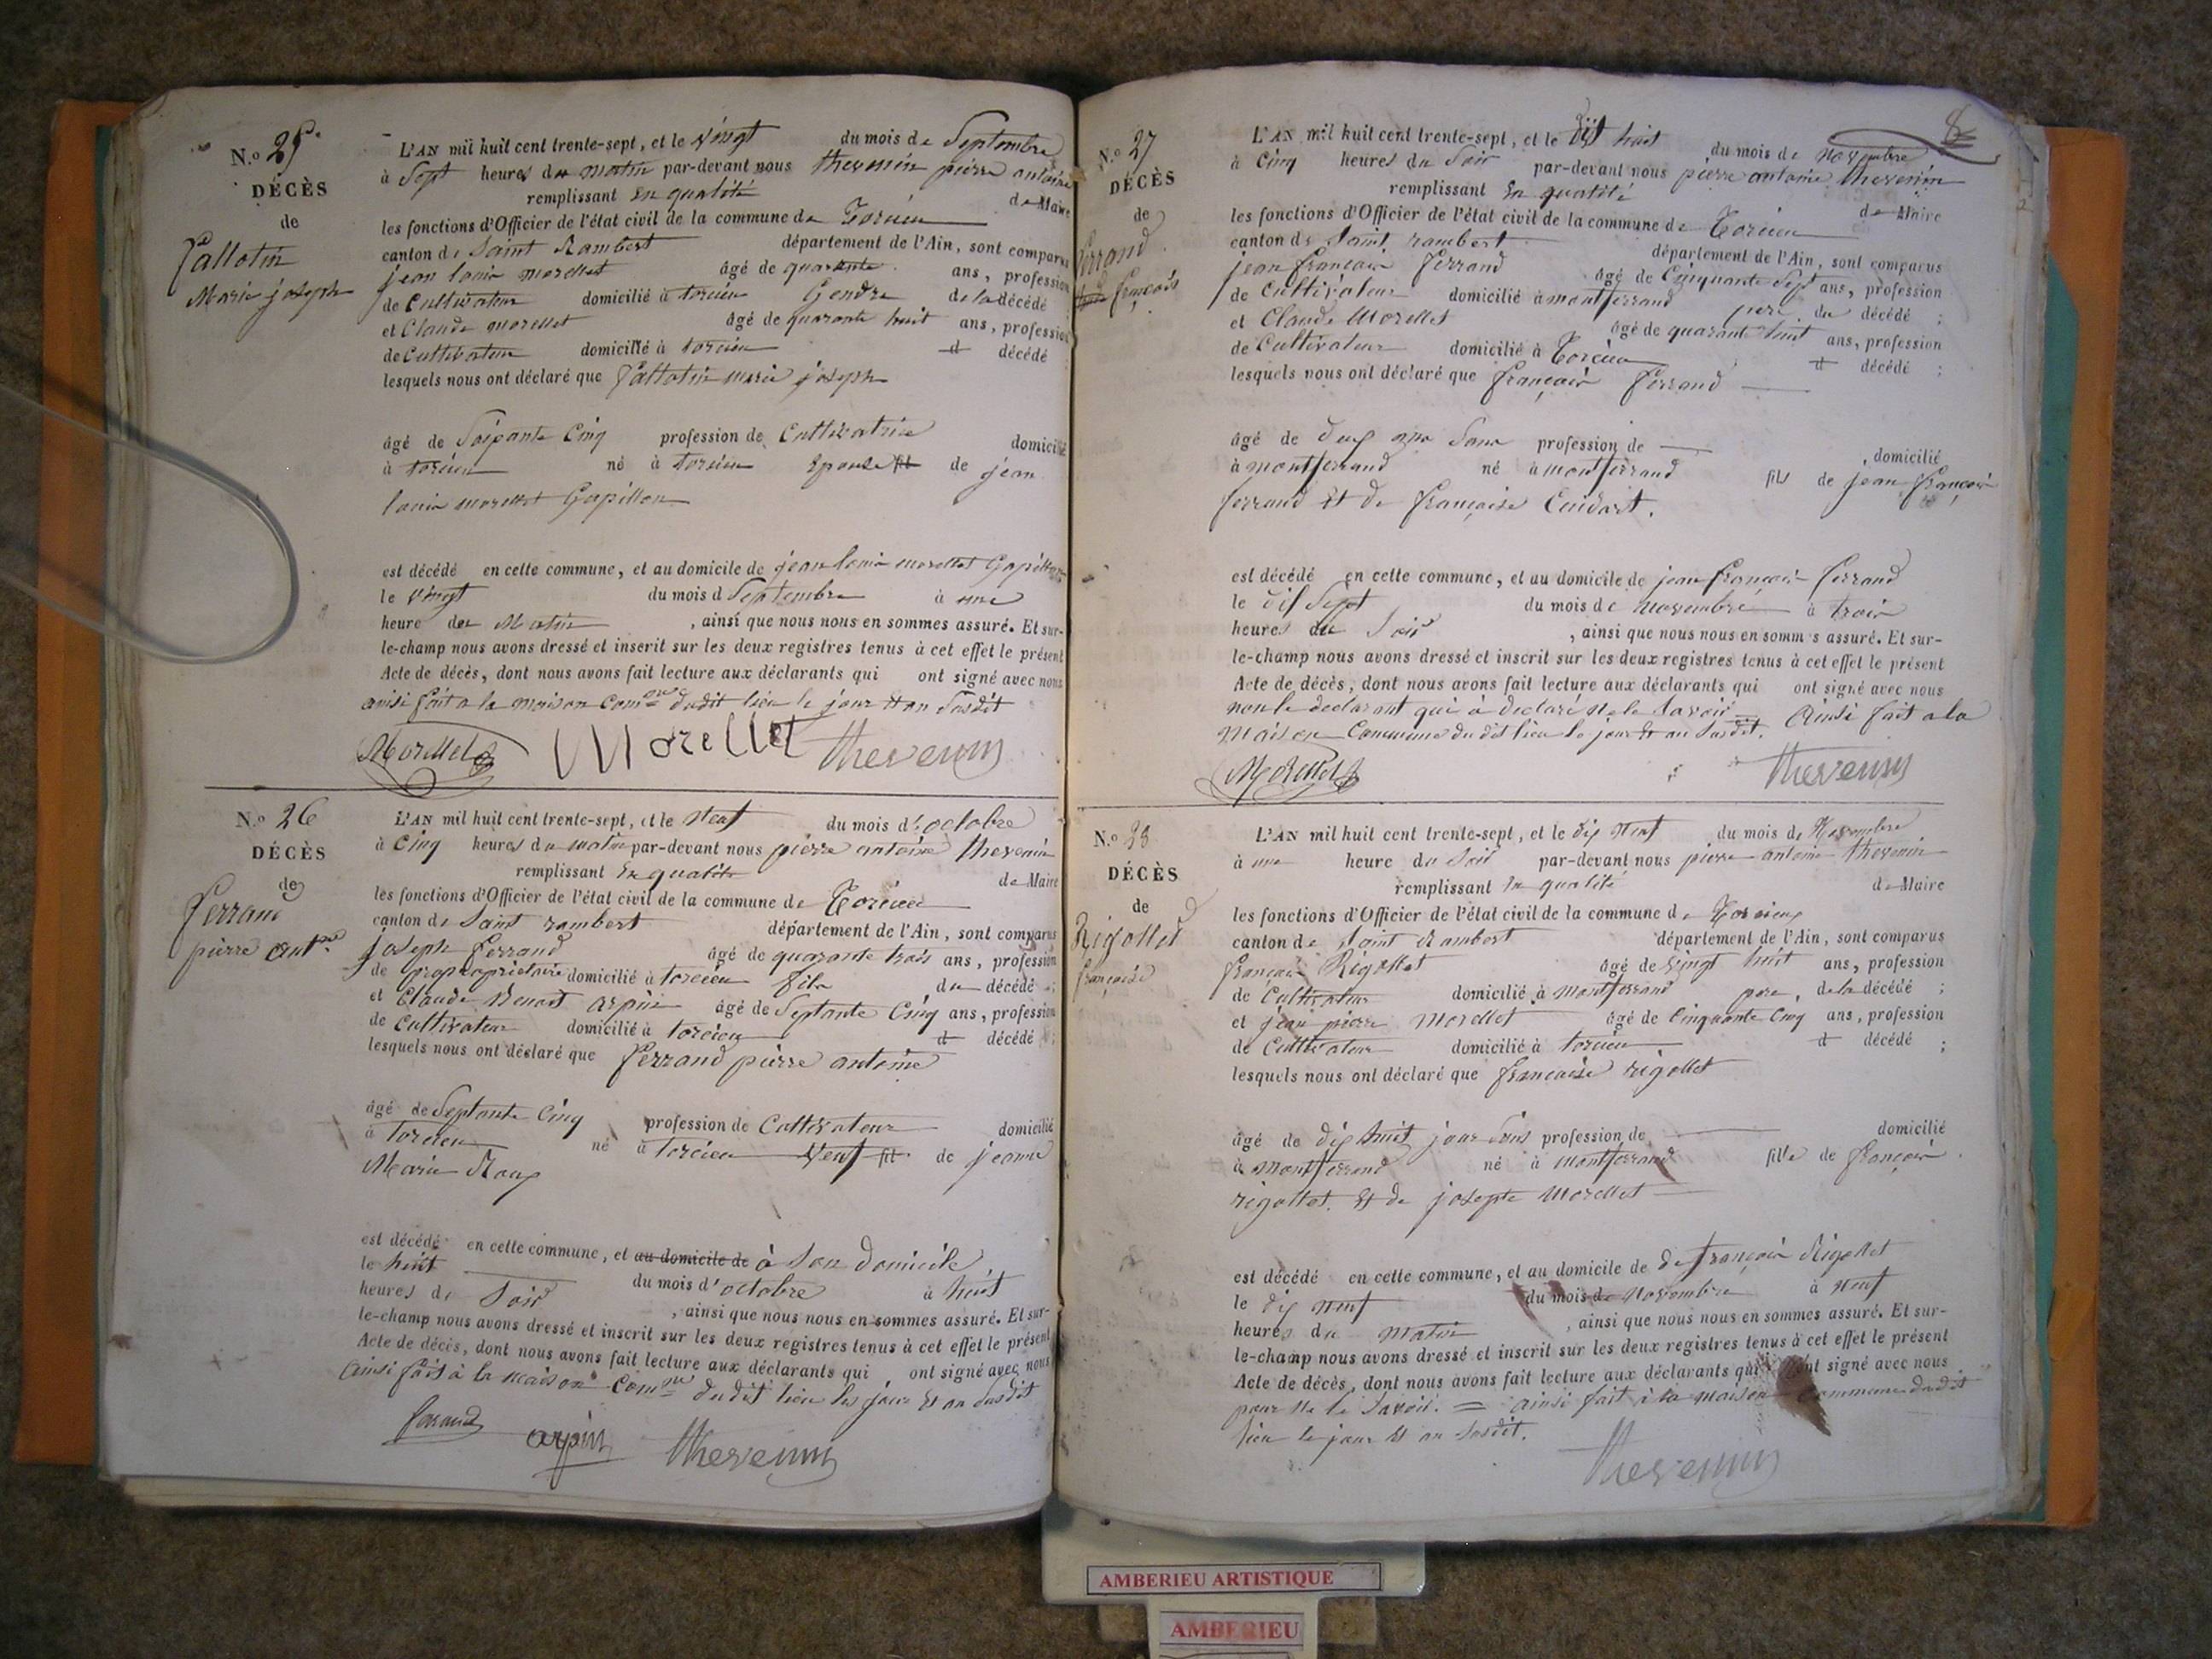 N.o 25.
DÉCÈS
de
Marie joseph
L'AN mil huit cent trente-sept, et le vingt du mois de Septembre
à Sept heures du matin par-devant nous thevenin pierre antoine
remplissant En qualité de Maire
les fonctions d'Officier de l'état civil de la commune de Torcieu
canton de Saint Rambert département de l'Ain, sont comparus
jean louis morellet âgé de quarante ans, profession
de Cultivateur domicilié à torcieu Gendre de la décédé
et Claude morellet âgé de quarante huit ans, profession
de Cultivateur domicilié à torcieu d décédé
lesquels nous ont déclaré que marie joseph
âgé de Soixante Cinq profession de Cultivatrice domicilié
à torcieu né à torcieu Epouse fil de jean
louis morellet Gapillon
est décédé en cette commune, et au domicile de jean louis morellet Gapillon
le vingt du mois d Septembre à une
heure du Matin, ainsi que nous nous en sommes assuré. Et sur-
le-champ nous avons dressé et inscrit sur les deux registres tenus à cet effet le présent
Acte de décès, dont nous avons fait lecture aux déclarants qui ont signé avec nous
ainsi fait a la maison comne dudit lieu le jour et an Susdit
Morellet Morellet thevenin
N.o 26
DÉCÈS
de
Ferrand
pierre antne
L'AN mil huit cent trente-sept, et le neuf du mois d'octobre
à Cinq heures du matin par-devant nous pierre antoine thevenin
remplissant En qualité de Maire
les fonctions d'Officier de l'état civil de la commune de Torcieu
canton de Saint rambert département de l'Ain, sont comparus
joseph ferrand âgé de quarante trois ans, profession
de propriétaire domicilié à torcieu fils du décédé ;
et Claude Benoit arpin âgé de Septante Cinq ans, profession
de Cultivateur domicilié à torcieu d décédé ;
lesquels nous ont déclaré que ferrand pierre antoine
âgé de Septante Cinq profession de Cultivateur domicilié
à torcieu né à torcieu Veuf fil de jeanne
Marie Roux
est décédé en cette commune, et au domicile de à Son domicile
le huit du mois d'octobre à huit
heures de Soir, ainsi que nous nous en sommes assuré. Et sur-
le-champ nous avons dressé et inscrit sur les deux registres tenus à cet effet le présent
Acte de décès, dont nous avons fait lecture aux déclarants qui ont signé avec nous
Ainsi fait à la maison comne dudit lieu les jour Et an Susdit
ferrand arpin thevenin
8
N.o 27
DÉCÈS
de
ferrand
françois
L'AN mil huit cent trente-sept, et le dix huit du mois de novembre
à Cinq heures du Soir par-devant nous pierre antoine thevenin
remplissant En qualité de Maire
les fonctions d'Officier de l'état civil de la commune de Torcieu
canton de Saint rambert département de l'Ain, sont comparus
jean françois ferrand âgé de Cinquante Sept ans, profession
de Cultivateur domicilié à montferrand pere du décédé ;
et Claude Morellet âgé de quarant huit ans, profession
de Cultivateur domicilié à Torcieu d décédé ;
lesquels nous ont déclaré que françois ferrand
âgé de deux ans Sans profession de domicilié
à montferrand né à montferrand fils de jean françois
ferrand Et de françoise Cuidart.
est décédé en cette commune, et au domicile de jean françois ferrand
le dix Sept du mois de novembre à trois
heures du Soir, ainsi que nous nous en sommes assuré. Et sur-
le-champ nous avons dressé et inscrit sur les deux registres tenus à cet effet le présent
Acte de décès, dont nous avons fait lecture aux déclarants qui ont signé avec nous
non le declarant qui a declaré ne le Savoir Ainsi fait a la
Maison Commune du dit lieu le jour Et an Susdit.
Morellet thevenin
N.o 28
DÉCÈS
de
Rigollet
françoise
L'AN mil huit cent trente-sept, et le dix neuf du mois de Novembre
à une heure du Soir par-devant nous pierre antoine thevenin
remplissant En qualité de Maire
les fonctions d'Officier de l'état civil de la commune de Torcieux
canton de Saint Rambert département de l'Ain, sont comparus
françois Rigollet âgé de vingt huit ans, profession
de Cultivateur domicilié à montferrand pere, de la décédé ;
et jean pierre morellet âgé de Cinquante Cinq ans, profession
de Cultivateur domicilié à torcieu d décédé ;
lesquels nous ont déclaré que françoise rigollet
âgé de dix huit jour Sans profession de domicilié
à montferrand né à montferrand fille de françois
rigollet. Et de josepte Morellet
est décédé en cette commune, et au domicile de de françois Rigollet
le dix neuf du mois de Novembre à neuf
heures du matin, ainsi que nous nous en sommes assuré. Et sur-
le-champ nous avons dressé et inscrit sur les deux registres tenus à cet effet le présent
Acte de décès, dont nous avons fait lecture aux déclarants qui n'ont signé avec nous
pour ne le Savoir. = ainsi fait à la maison Commune dudit
lieu le jour Et an Susdit.
thevenin
AMBERIEU ARTISTIQUE
AMBERIEU